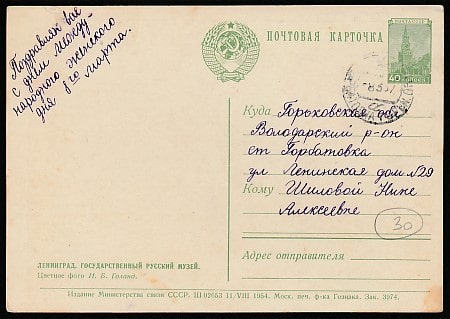 Поздравляю вас
с днём между-
народного женского
дня 8го марта.
ПОЧТОВАЯ КАРТОЧКА
ПОЧТА СССР
40
КОПЕЕК
-8.3.57
Куда Горьковская об.
Володарский р-он
ст Горбатовка
ул Ленинская дом №29
Кому Шиловой Нине
Алексеевне
30
Адрес отправителя
ЛЕНИНГРАД. ГОСУДАРСТВЕННЫЙ РУССКИЙ МУЗЕЙ.
Цветное фото И. Б. Голанд.
Издание Министерства связи СССР. Ш 02653 11/VIII 1954. Моск. печ. ф-ка Гознака. Зак. 3974.